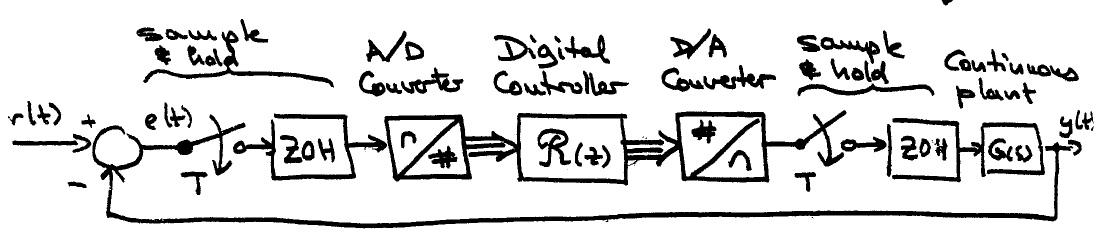 sample & hold
A/D Converter
Digital Controller
D/A Converter
sample & hold
Continuous plant
r(t)
+
-
e(t)
T
ZOH
n
#
R(z)
#
n
T
ZOH
G(s)
y(t)